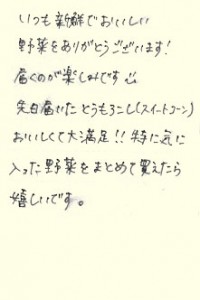 いつも新鮮でおいしい
野菜をありがとうございます!
届くのが楽しみです
先日届いたとうもろこし(スイートコーン)
おいしくて大満足!!特に気に
入った野菜をまとめて買えたら
嬉しいです。